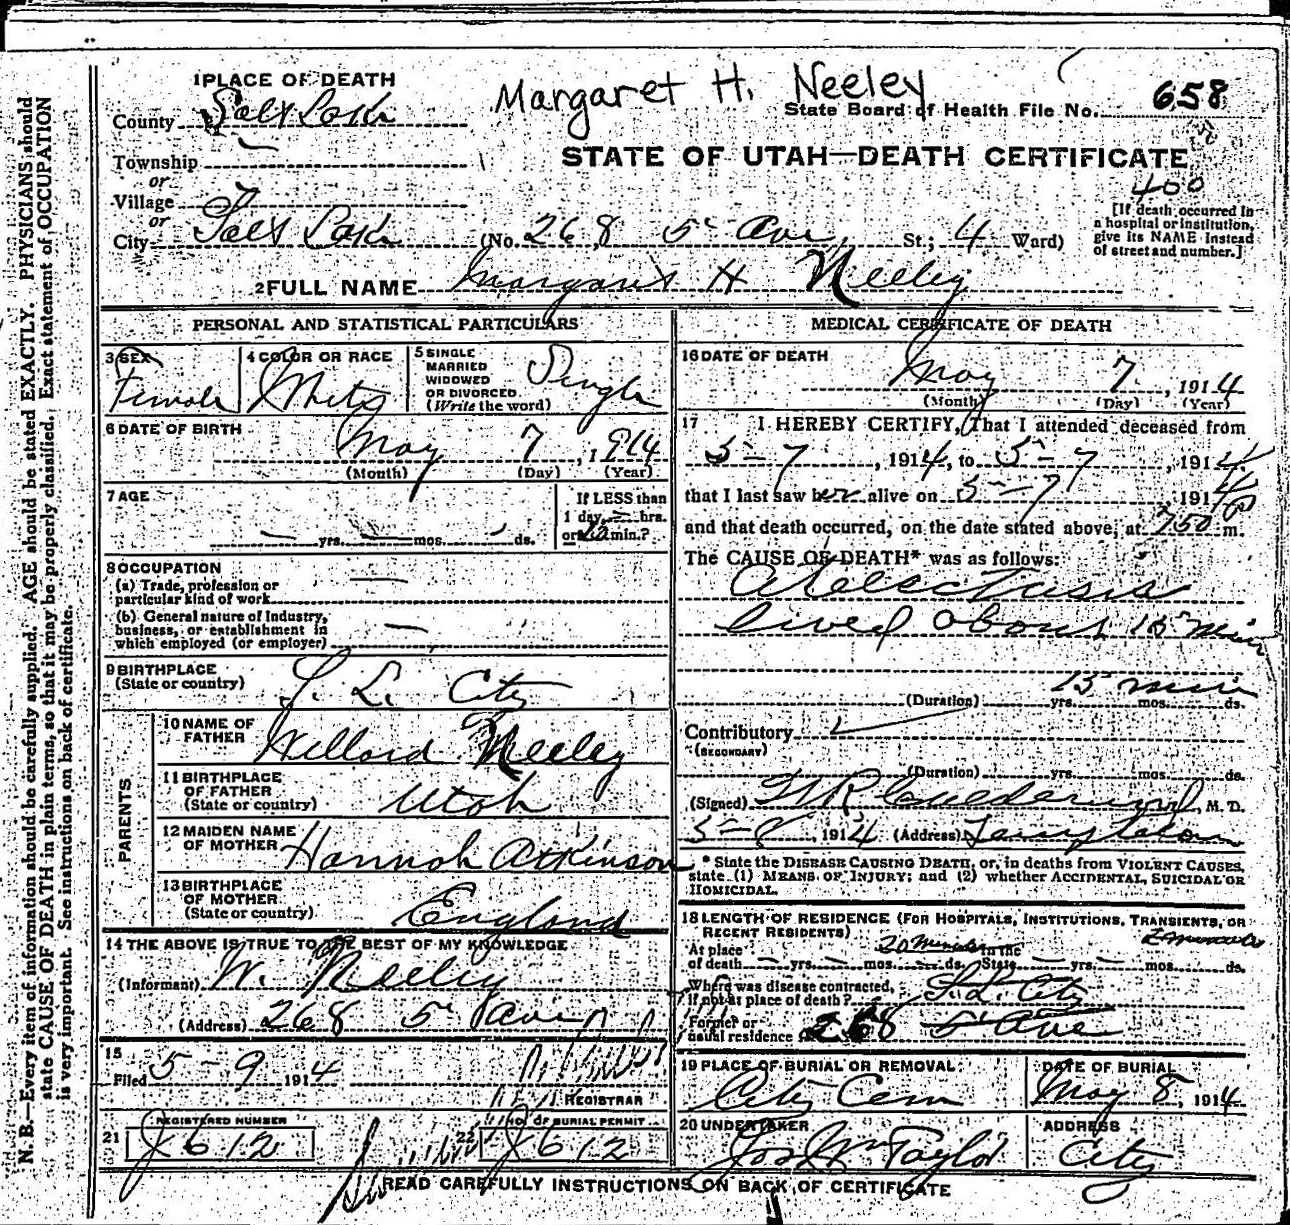 Margaret H. Neeley
1 PLACE OF DEATH
County Salt Lake
State Board of Health File No. 658
Township
or
Village
or
City Salt Lake (No. 268 5" Ave St.; 4 Ward)
STATE OF UTAH—DEATH CERTIFICATE
400
[If death occurred in
a hospital or institution,
give its NAME instead
of street and number.]
2 FULL NAME Margaret H Neeley
PERSONAL AND STATISTICAL PARTICULARS
3 SEX
Female
4 COLOR OR RACE
White
5 SINGLE
MARRIED
WIDOWED
OR DIVORCED
(Write the word)
Single
6 DATE OF BIRTH
May 7, 1914
(Month) (Day) (Year)
7 AGE
yrs. mos. ds.
If LESS than
1 day, hrs.
or min.?
8 OCCUPATION
(a) Trade, profession or
particular kind of work
(b) General nature of industry,
business, or establishment in
which employed (or employer)
9 BIRTHPLACE
(State or country)
S. L. City
PARENTS
10 NAME OF
FATHER
Willard Neeley
11 BIRTHPLACE
OF FATHER
(State or country)
Utah
12 MAIDEN NAME
OF MOTHER
Hannah Atkinson
13 BIRTHPLACE
OF MOTHER
(State or country)
England
14 THE ABOVE IS TRUE TO THE BEST OF MY KNOWLEDGE
(Informant) W. Neeley
(Address) 268 5" Ave
15
Filed 5-9 1914
REGISTRAR
21
REGISTERED NUMBER
J612
22
NO. OF BURIAL PERMIT
J612
MEDICAL CERTIFICATE OF DEATH
16 DATE OF DEATH
May 7, 1914
(Month) (Day) (Year)
17 I HEREBY CERTIFY, That I attended deceased from
5-7, 1914, to 5-7, 1914
that I last saw her alive on 5-7 1914
and that death occurred, on the date stated above, at 750 m.
The CAUSE OF DEATH* was as follows:
Atelectasis
lived about 15 min
15 min
(Duration) yrs. mos. ds.
Contributory
(SECONDARY)
(Duration) yrs. mos. ds.
(Signed) M. D.
5-8, 1914 (Address)
* State the DISEASE CAUSING DEATH, or, in deaths from VIOLENT CAUSES,
state (1) MEANS OF INJURY; and (2) whether ACCIDENTAL, SUICIDAL OR
HOMICIDAL.
18 LENGTH OF RESIDENCE (FOR HOSPITALS, INSTITUTIONS, TRANSIENTS, OR
RECENT RESIDENTS)
At place 20 minutes In the
of death yrs. mos. ds. State yrs. mos. ds.
Where was disease contracted,
if not at place of death? S. L. City
Former or
usual residence 268 5" Ave
19 PLACE OF BURIAL OR REMOVAL
City Cem
DATE OF BURIAL
May 8, 1914
20 UNDERTAKER
Jos Wm Taylor
ADDRESS
City
READ CAREFULLY INSTRUCTIONS ON BACK OF CERTIFICATE
N. B.—Every item of information should be carefully supplied. AGE should be stated EXACTLY. PHYSICIANS should
state CAUSE OF DEATH in plain terms, so that it may be properly classified. Exact statement of OCCUPATION
is very important. See instructions on back of certificate.